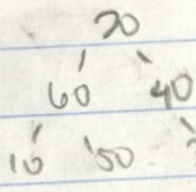 70
60 40
10 50